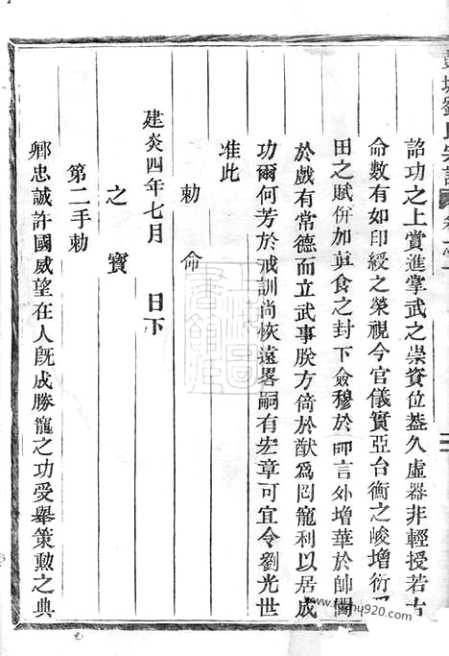 彭城劉氏宗譜 卷一
詔功之上賞進掌武之崇資位蓋久虛器非輕授若古
命數有如印綬之榮視今官儀實亞台衡之峻增衍
田之賦倂加眞食之封下僉穆於師言外增華於帥閫
於戲有常德而立武事朕方倚於猷爲罔寵利以居成
功爾何芳於戒訓尚恢遠畧嗣有宏章可宜令劉光世
准此
勅命
建炎四年七月 日下
之寳
第二手勅
鄉忠誠許國威望在人旣成勝寇之功受舉策勲之典